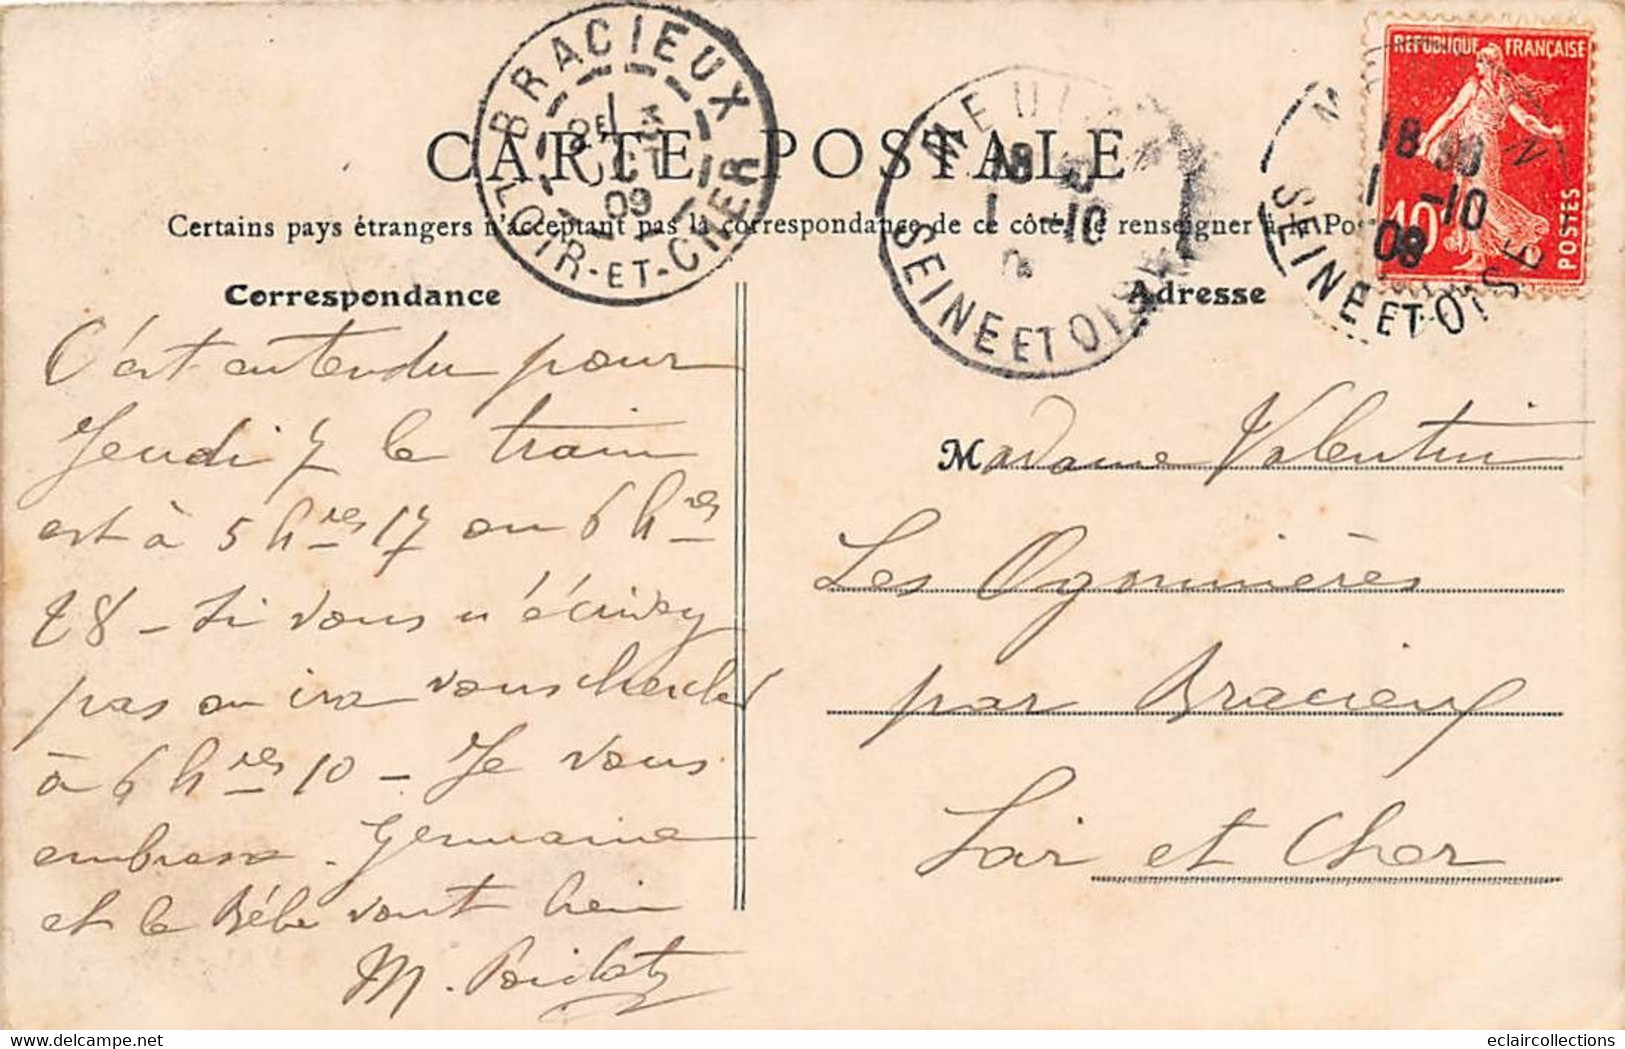 BRACIEUX
LOIR-ET-CHER
09
MEUL
18
1 -10
SEINE ET OISE
18 30
1 -10
09
SEINE ET OISE
REPUBLIQUE FRANÇAISE
10
POSTES
CARTE POSTALE
Certains pays étrangers n'acceptant pas la correspondance de ce côté, se renseigner à la Po
Correspondance
Adresse
C'est entendu pour
Jeudi 7 le train
est à 5 hres 17 ou 6 hres
28 - si vous n'écrivez
pas on ira vous chercher
à 6 hres 10 - Je vous
embrasse. Germaine
et le Bébé vont bien
M.
Madame Valentin
Les Ogonnières
par Bracieux
Loir et Cher
www.delcampe.net
eclaircollections